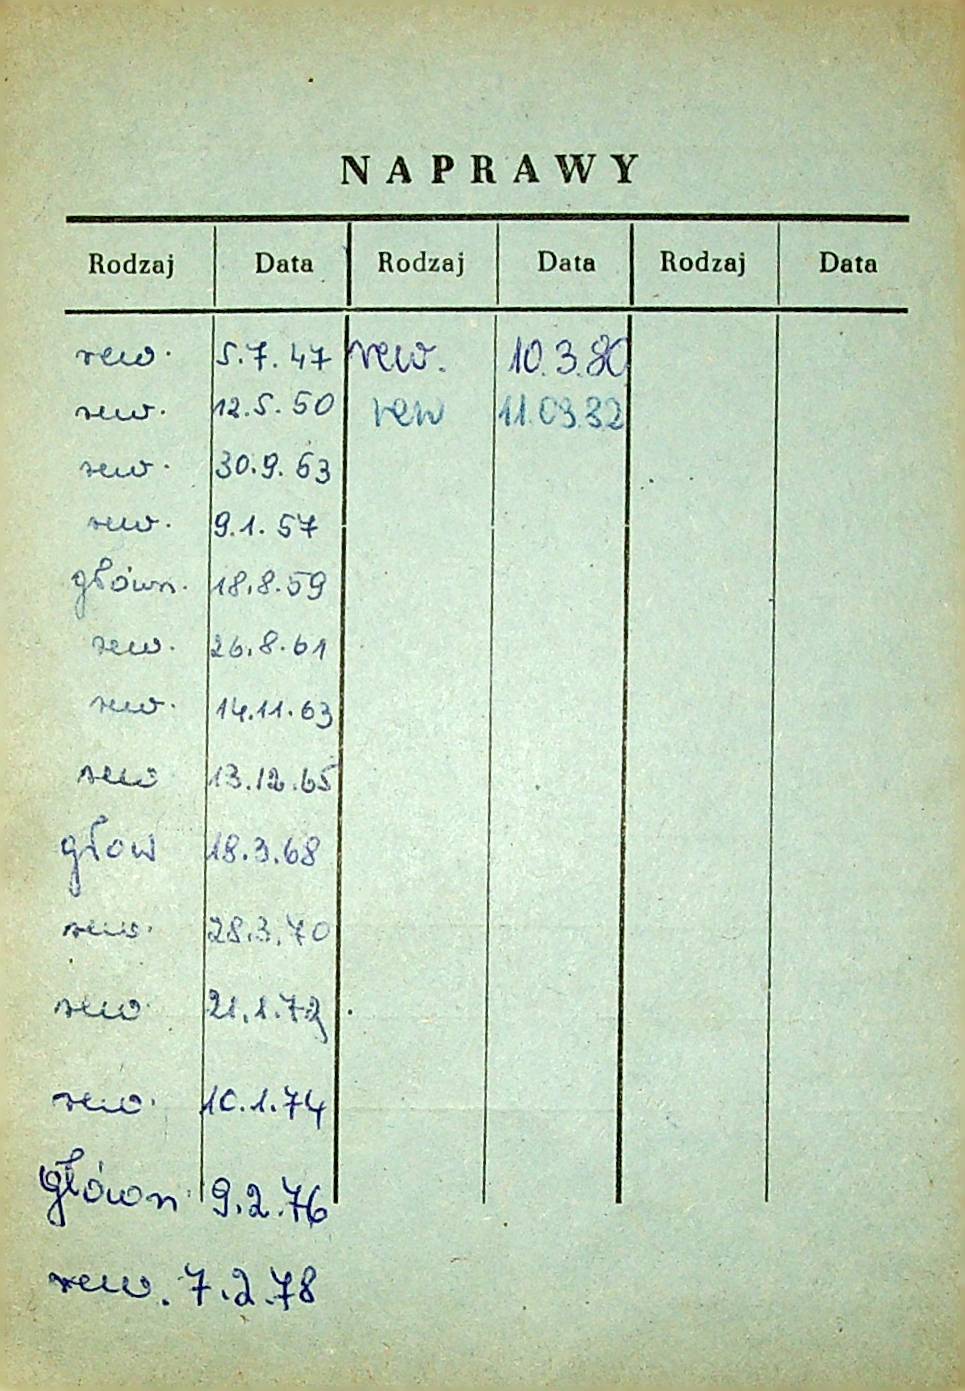 NAPRAWY
Rodzaj Data Rodzaj Data Rodzaj Data
rew. 5.7.47 rew. 10.3.80
rew. 12.5.50 rew 11.03.82
rew. 30.9.53
rew. 9.1.57
główn. 18.8.59
rew. 26.8.61
rew. 14.11.63
rew 13.12.65
głow 18.3.68
rew. 28.3.70
rew. 21.1.72
rew. 10.1.74
główn. 9.2.76
rew. 7.2.78